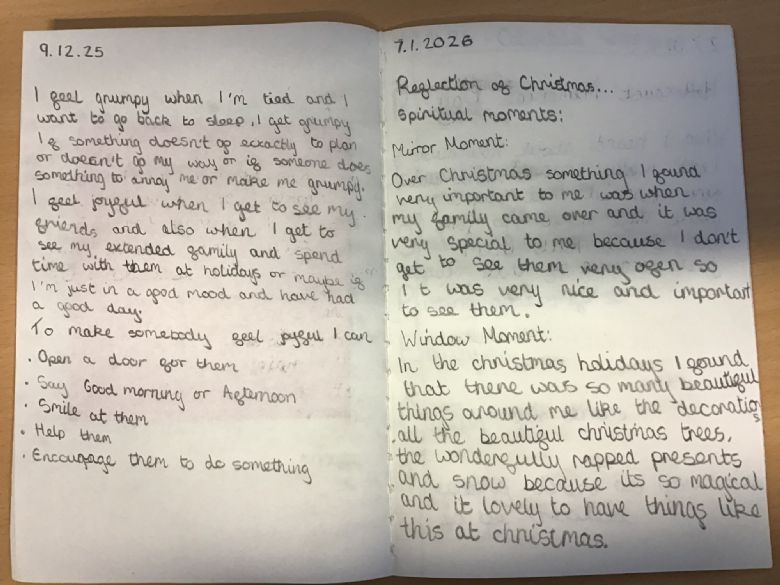 9.12.25
I feel grumpy when I'm tied and I
want to go back to sleep. I get grumpy
If something doesn't go exxactly to plan
or doesn't go my way or if someone does
something to annoy me or make me grumpy.
I feel joyful when I get to see my
friends and also when I get to
see my extended family and spend
time with them at holidays or maybe if
I'm just in a good mood and have had
a good day.
To make somebody feel joyful I can
• Open a door for them
• Say Good morning or Afternoon
• Smile at them
• Help them
• Encougage them to do something
7.1.2026
Reflection of Christmas...
spiritual moments:
Mirror Moment:
Over Christmas something I found
very important to me was when
my family came over and it was
very special to me because I don't
get to see them very ofen so
it was very nice and important
to see them.
Window Moment:
In the christmas holidays I found
that there was so many beautiful
things around me like the decorations
all the beautiful christmas trees,
the wonderfully rapped presents
and snow because its so magical
and it lovely to have things like
this at christmas.